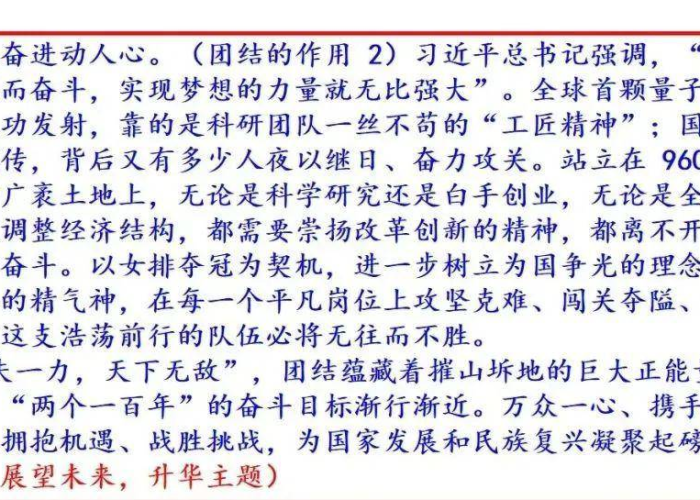 奋进动人心。（团结的作用 2）习近平总书记强调，“
而奋斗，实现梦想的力量就无比强大”。全球首颗量子
功发射，靠的是科研团队一丝不苟的“工匠精神”；国
传，背后又有多少人夜以继日、奋力攻关。站立在 960
广袤土地上，无论是科学研究还是白手创业，无论是全
调整经济结构，都需要崇扬改革创新的精神，都离不开
奋斗。以女排夺冠为契机，进一步树立为国争光的理念
的精气神，在每一个平凡岗位上攻坚克难、闯关夺隘、
这支浩荡前行的队伍必将无往而不胜。
一力，天下无敌”，团结蕴藏着摧山坼地的巨大正能
“两个一百年”的奋斗目标渐行渐近。万众一心、携手
拥抱机遇、战胜挑战，为国家发展和民族复兴凝聚起磅
展望未来，升华主题）